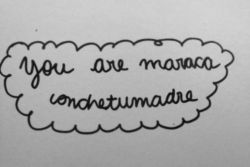 you are maraca
conchetumadre